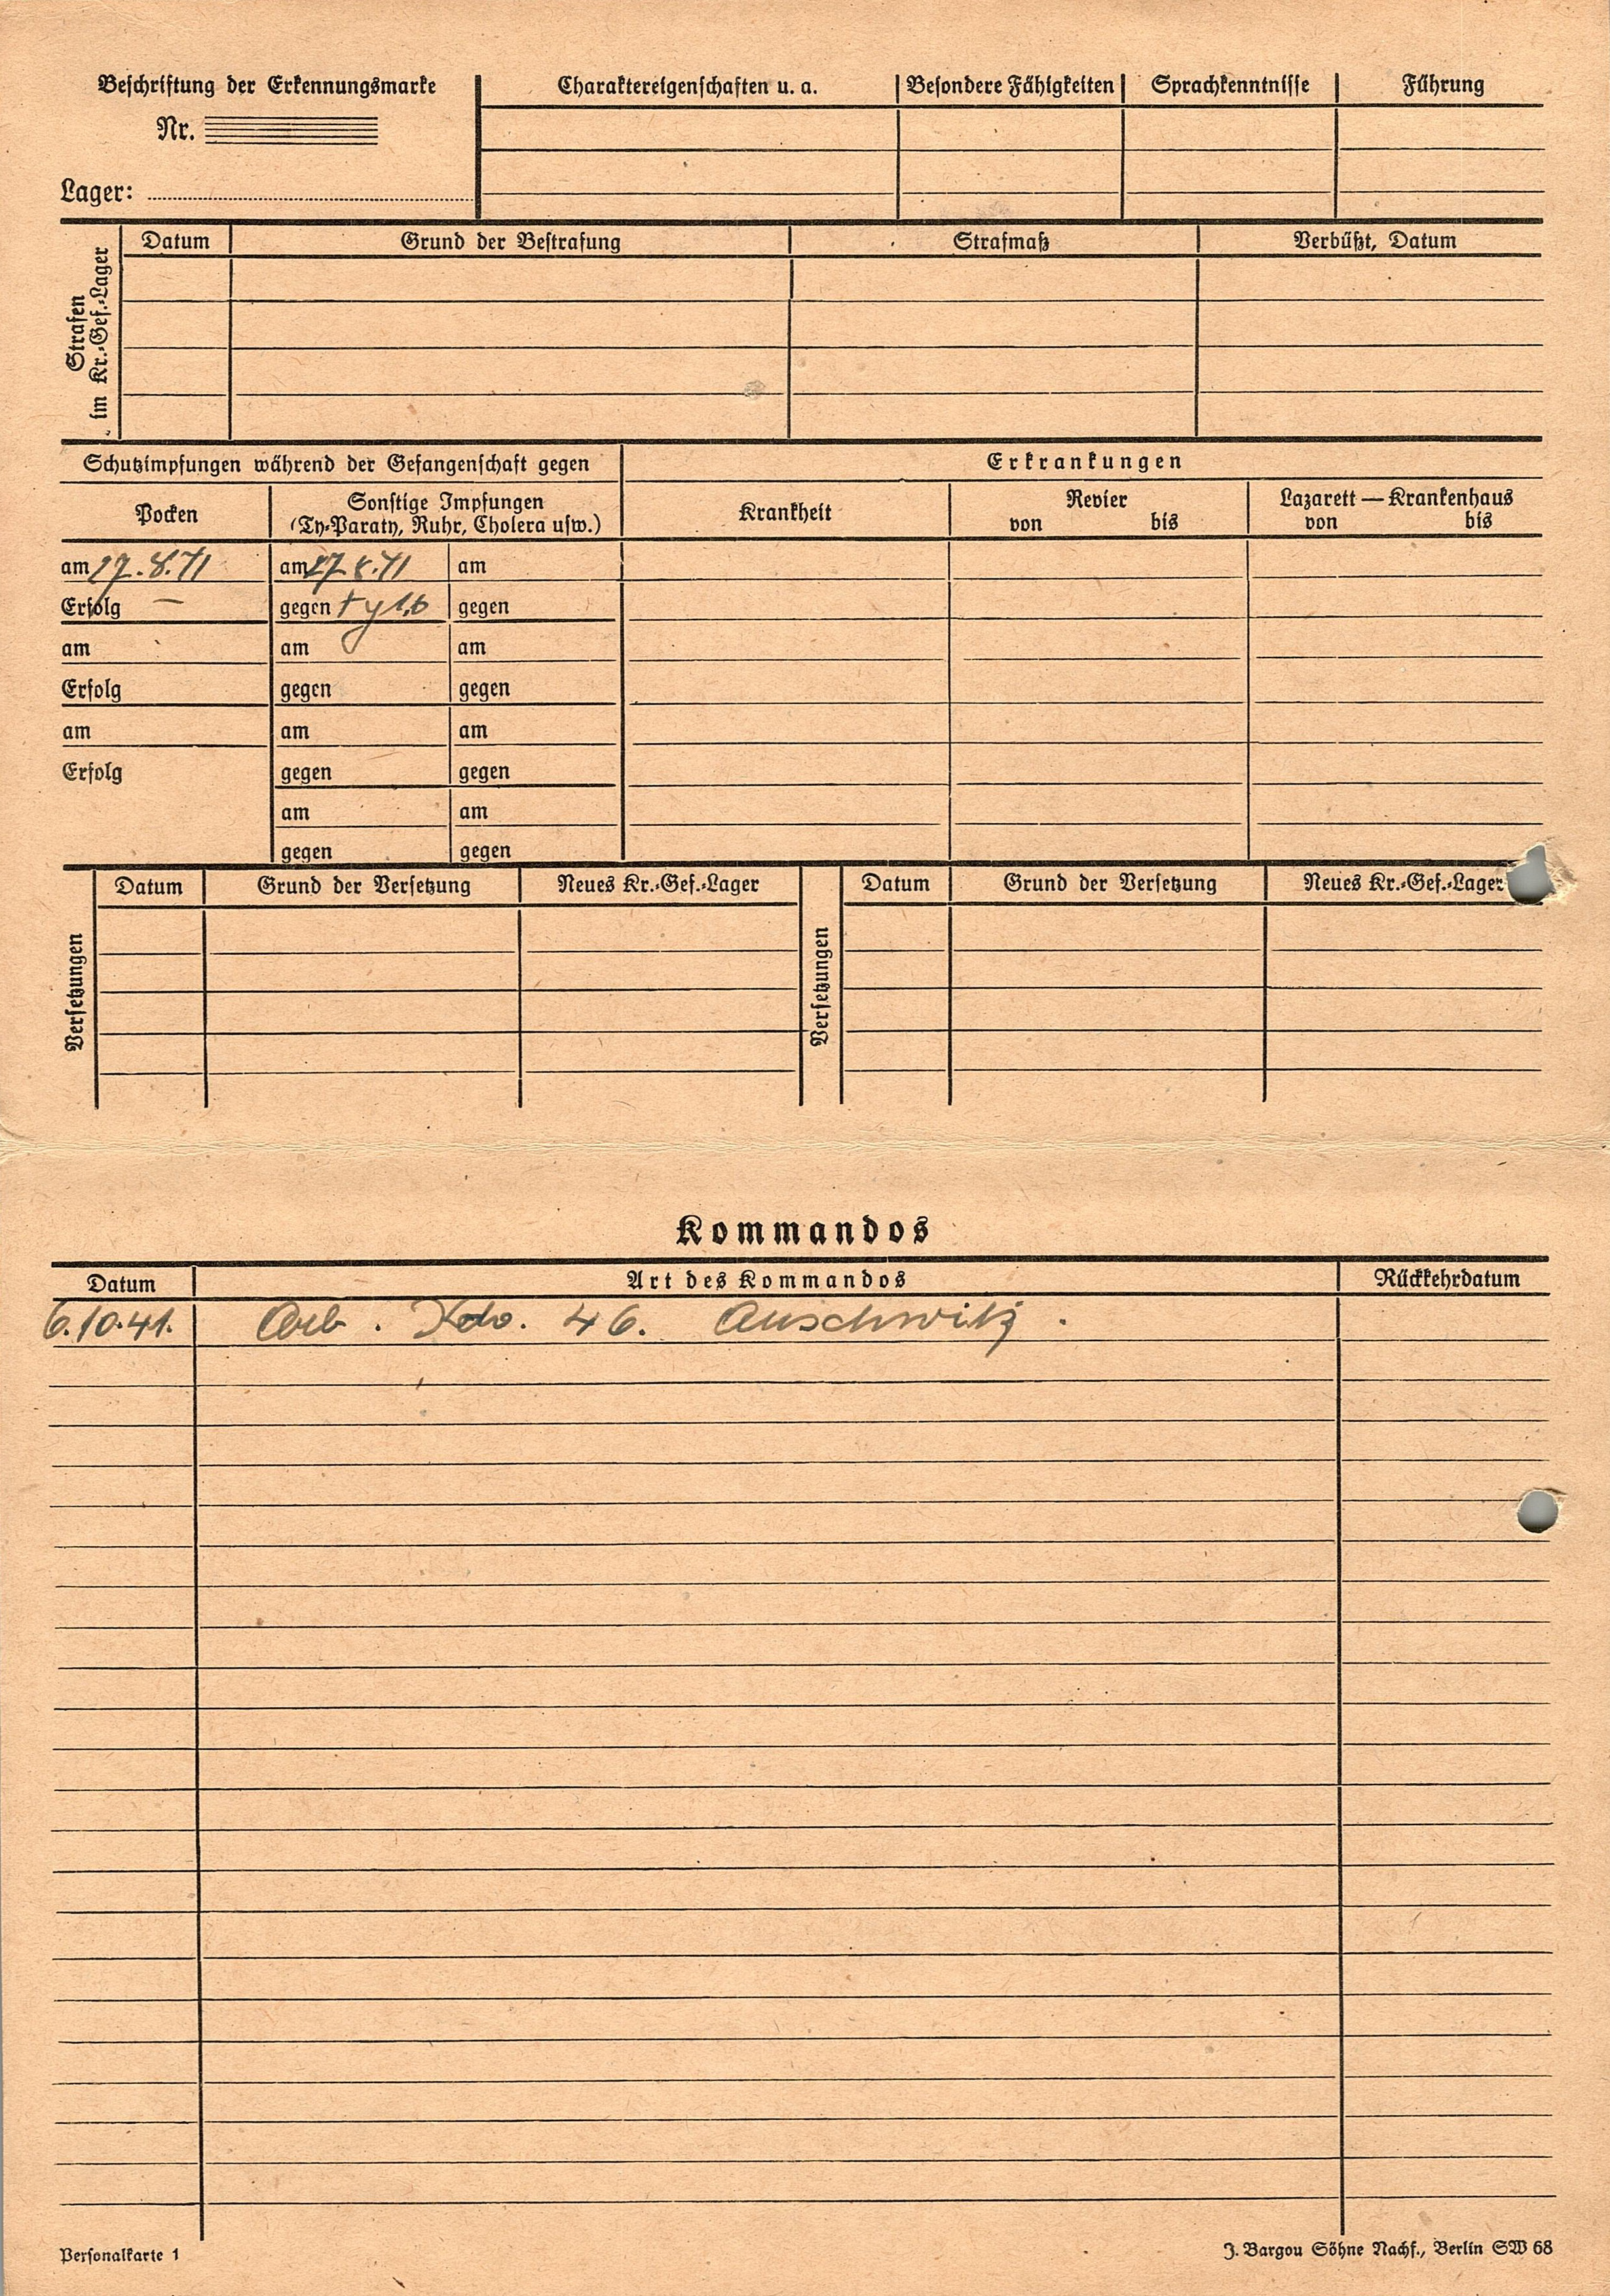 Beschriftung der Erkennungsmarke
Nr.
Lager:
Charaktereigenschaften u. a.
Besondere Fähigkeiten
Sprachkenntnisse
Führung
Strafen
im Kr.-Gef.-Lager
Datum
Grund der Bestrafung
Strafmaß
Verbüßt, Datum
Schutzimpfungen während der Gefangenschaft gegen
Erkrankungen
Pocken
Sonstige Impfungen
(Ty-Paraty, Ruhr, Cholera usw.)
Krankheit
Revier
von bis
Lazarett — Krankenhaus
von bis
am 27.8.41 am 27.8.41 am
Erfolg — gegen gegen
am am am
Erfolg gegen gegen
am am am
Erfolg gegen gegen
am am
gegen gegen
Versetzungen
Datum Grund der Versetzung Neues Kr.-Gef.-Lager
Versetzungen
Datum Grund der Versetzung Neues Kr.-Gef.-Lager
Kommandos
Datum Art des Kommandos Rückkehrdatum
6.10.41. Arb. Kdo. 46. Auschwitz.
Personalkarte 1
J. Bargou Söhne Nachf., Berlin SW 68